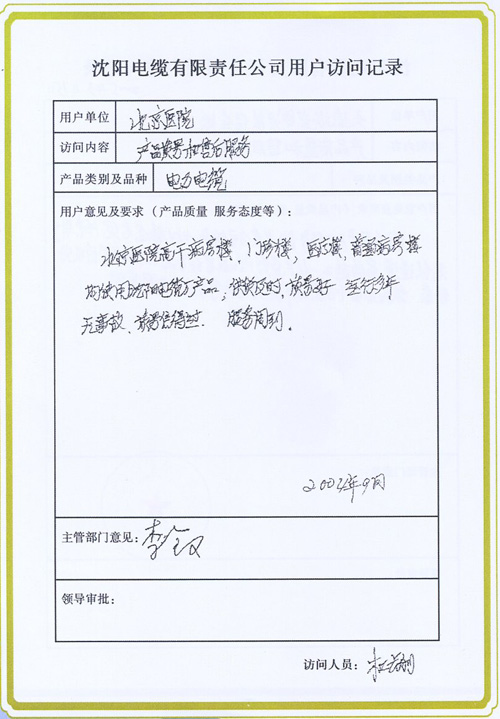 沈阳电缆有限责任公司用户访问记录
用户单位 北京医院
访问内容 产品质量和售后服务
产品类别及品种 电力电缆
用户意见及要求（产品质量 服务态度等）：
北京医院高干病房楼，门诊楼，医疗楼，普通病房楼
均使用沈阳电缆厂产品，供货及时，质量好 运行多年
无事故、质量信得过. 服务周到.
年9月
主管部门意见：李
领导审批：
访问人员：